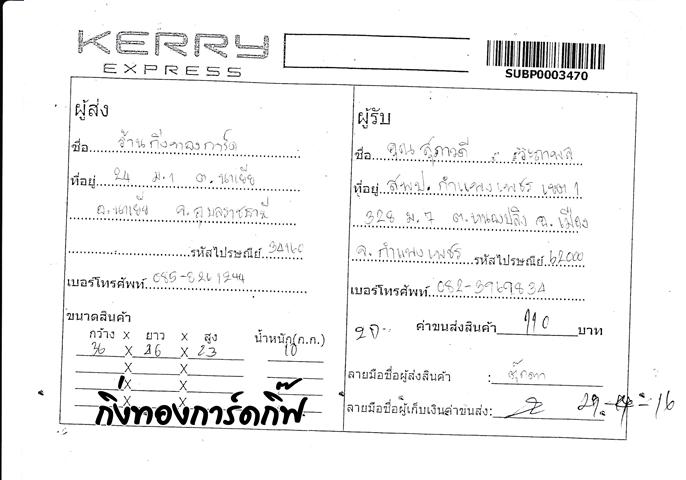 KERRY
EXPRESS
SUBP0003470
ผู้ส่ง
ชื่อ ร้านกิ่งทองการ์ด
ที่อยู่ 24 ม.1 ต.นาเยีย
อ.นาเยีย จ.อุบลราชธานี
รหัสไปรษณีย์ 34160
เบอร์โทรศัพท์ 085-8261244
ขนาดสินค้า
กว้าง X ยาว X สูง น้ำหนัก(ก.ก.)
36 X 26 X 23 10
X X
X X
X X
กิ่งทองการ์ดกิ๊ฟ
ผู้รับ
ชื่อ คุณ สุภาวดี
ที่อยู่ สพป. กำแพงเพชร เขต 1
328 ม.7 ต.หนองปลิง อ.เมือง
จ.กำแพงเพชร รหัสไปรษณีย์ 62000
เบอร์โทรศัพท์ 082-3969834
ค่าขนส่งสินค้า 110 บาท
ลายมือชื่อผู้ส่งสินค้า : ตุ๊กตา
ลายมือชื่อผู้เก็บเงินค่าขนส่ง: